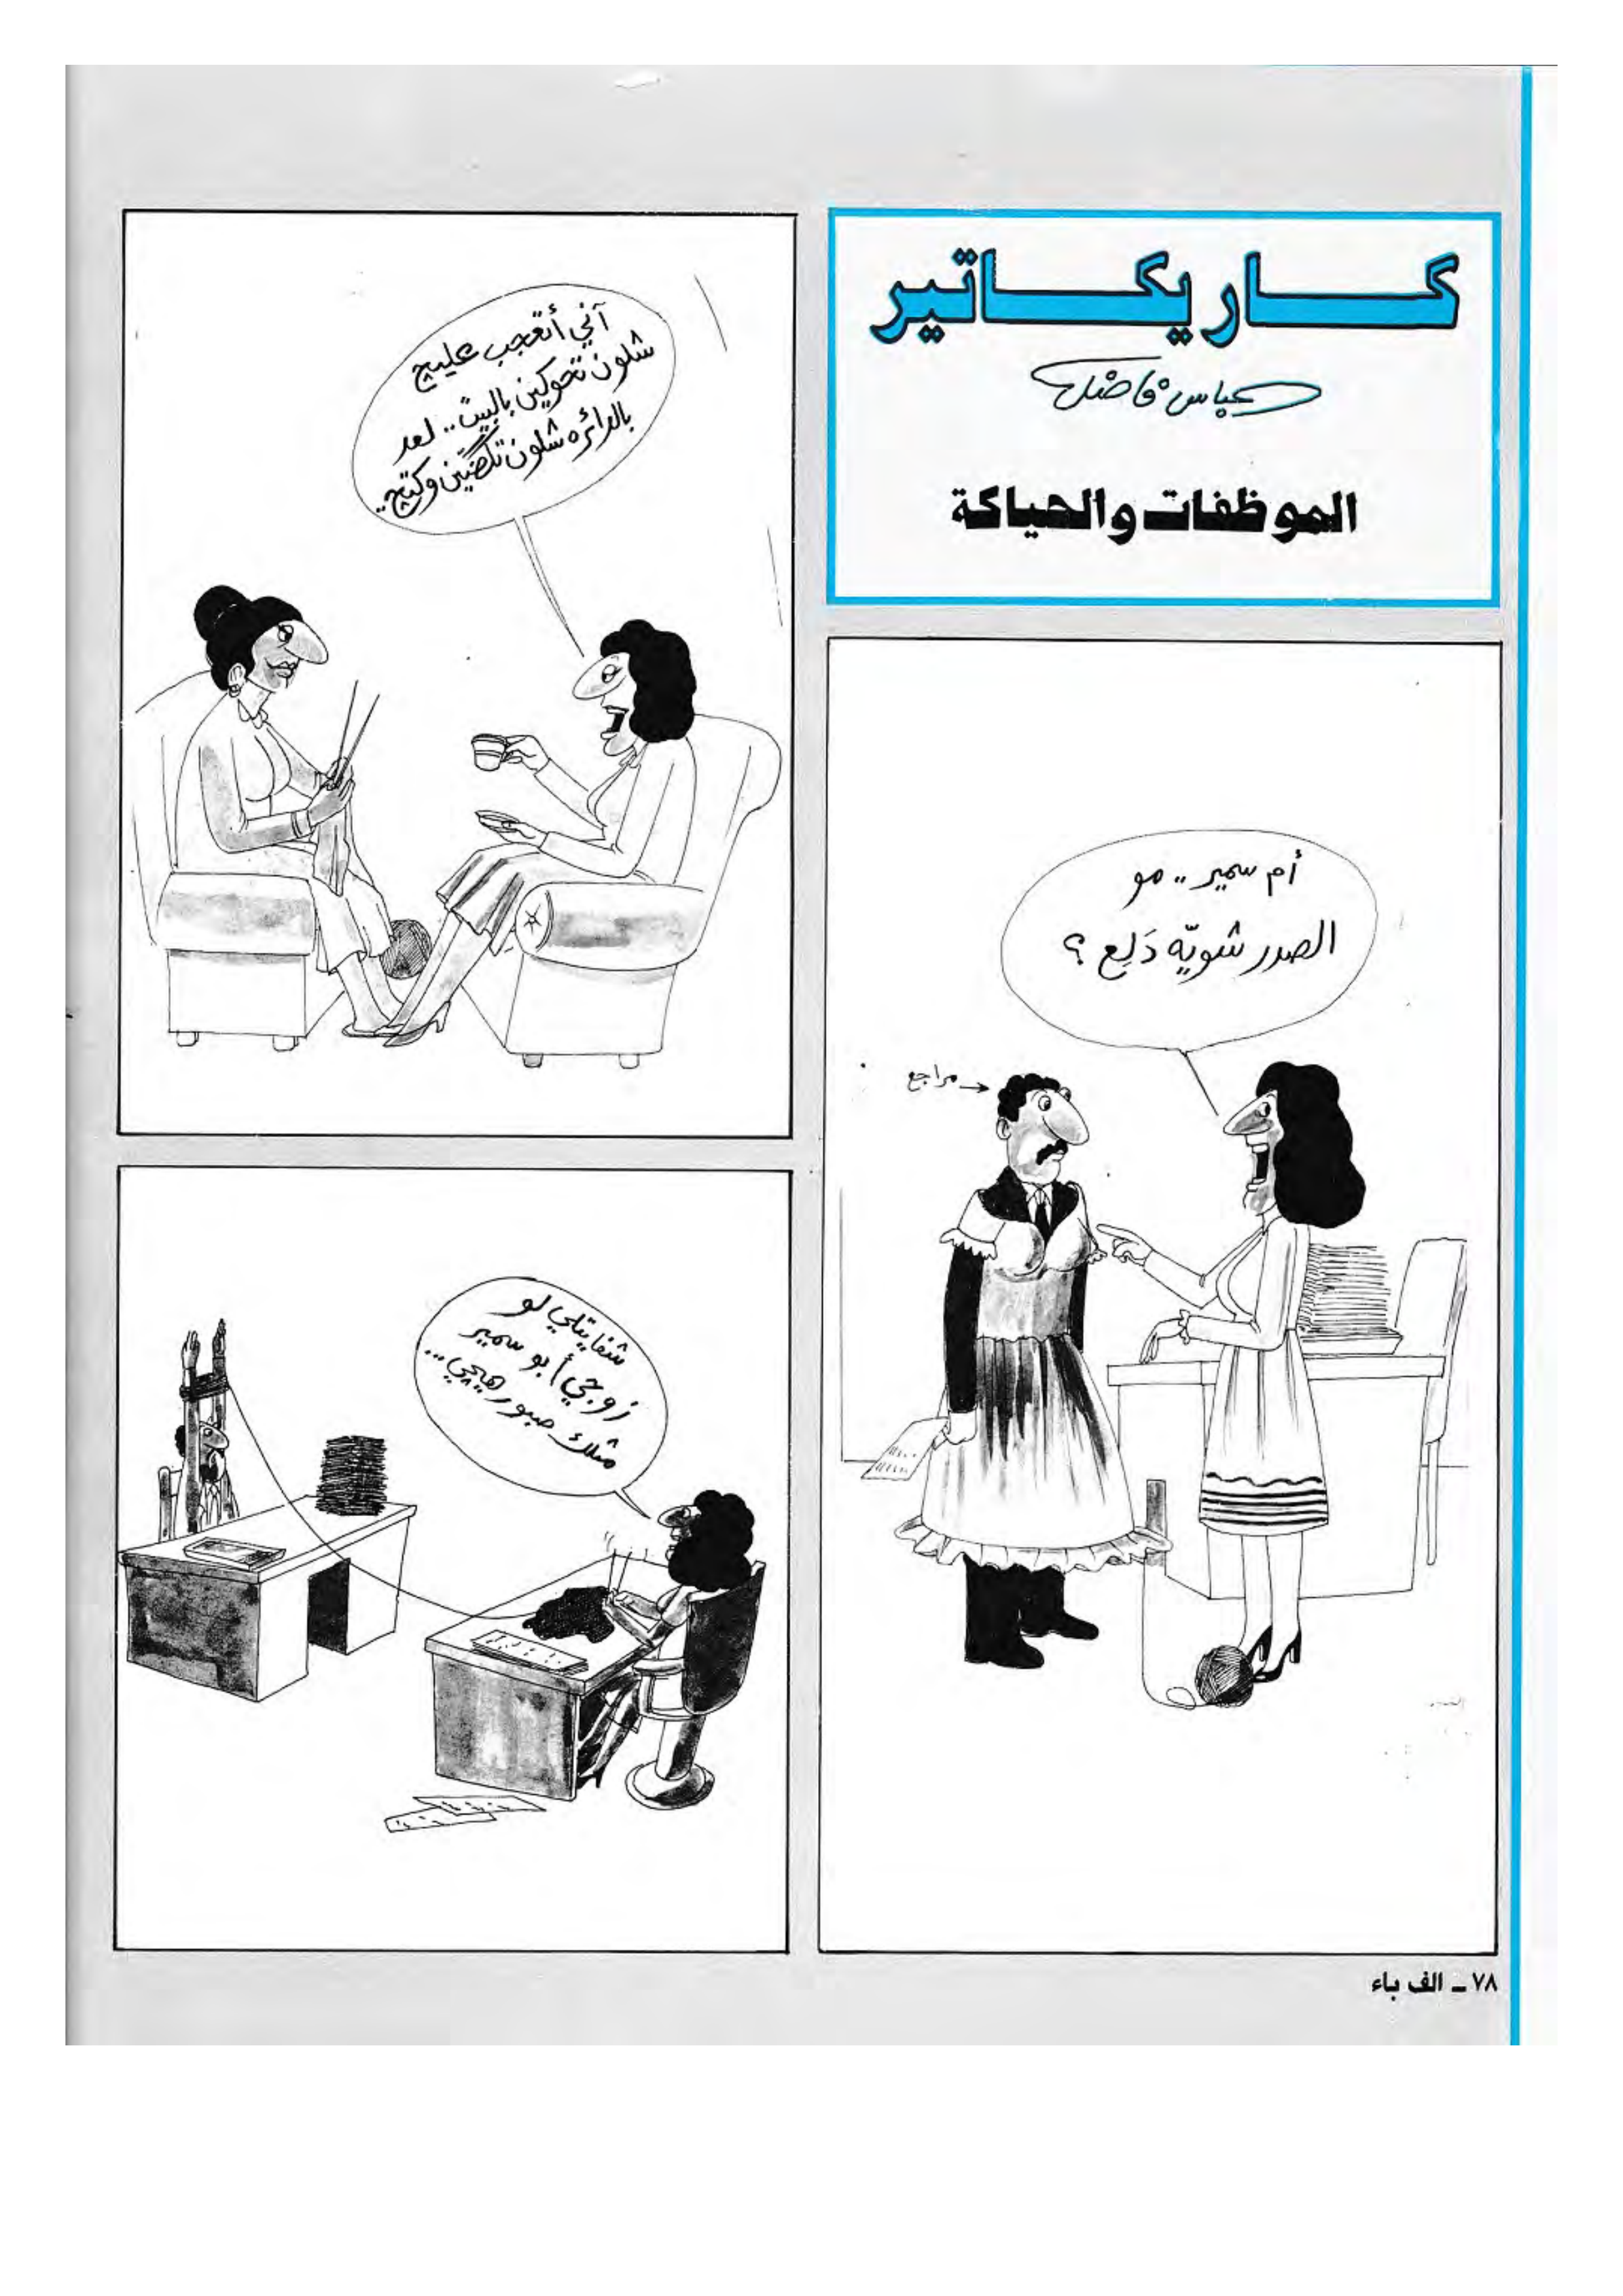 كاريكاتير
عباس فاضل
الموظفات والحياكة
أم سمير .. مو
الصدر شويّه دَلِع ؟
مراجع
آني أتعجب عليچ
شلون تحوكين بالبيت .. لعد
بالدائره شلون تكضيّن وكتچ ..
شفايتلي لو
زوجي أبو سمير
مثلك صبور هيچي ...
٧٨ ــ الف باء